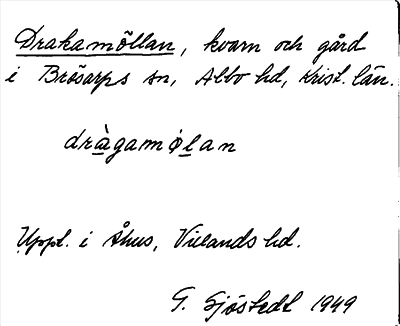 Drakamöllan, kvarn och gård
i Brösarps sn, Albo hd, Krist. län.
dràgamølan
Uppl. i Åhus, Villands hd.
G. Sjöstedt 1949